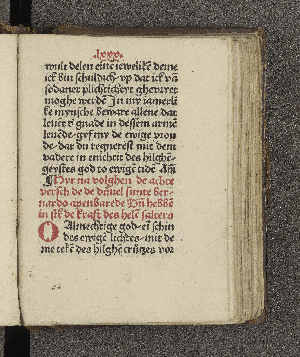 .lxxx.
wult delen eine ieweliken deme
ick bin schuldich. up dat ick vā
sodaner plichticheyt ghevryet
moghe werdē In my iamerli
ke mynsche beware allene dat
leuēt ē gnade in dessem armē
leuēde. gyf my de ewige vrou
de. dar du regnerest mit dem
vadere in enicheit des hilghē
geystes god to ewigē tidē Amē
Hyr na volghen de achte
versch de de duuel sunte ber-
nardo apenbarede Vn̄ hebbē
in sik de kraft des helē salters
O Almechtige god. eī schin
des ewigē lichtes. mit de
me tekē des hilghē crützes vor